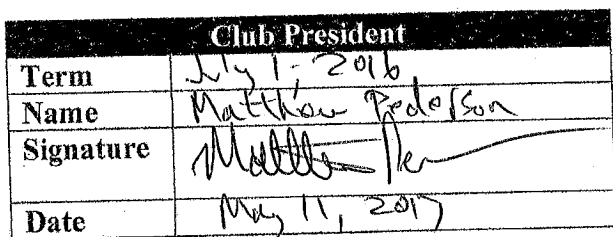 Club President
Term July 1, 2016
Name Matthew Pederson
Signature Matthew
Date May 11, 2017